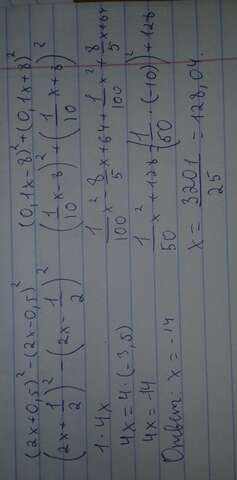 (2x+0,5)² - (2x-0,5)²
(2x+1/2)² - (2x-1/2)²
1·4x
4x=4·(-3,5)
4x=14
Ответ: x=-14
(0,1x-8)²+(0,1x+8)²
(1/10 x-8)²+(1/10 x+8)²
1/100 x² - 8/5 x+64+1/100 x²+8/5 x+64
1/50 x²+128=(1/50·(-10)²)+128
x= 3201/25 =128,04.